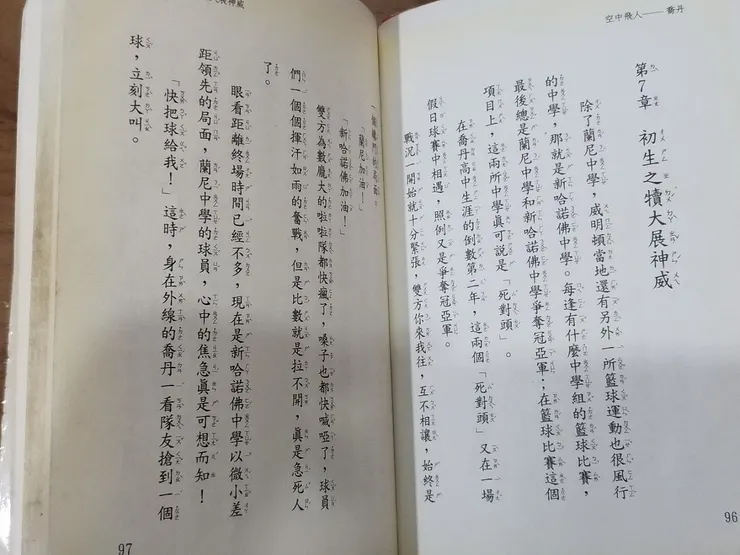 空中飛人——喬丹
第7章 初生之犢大展神威
除了蘭尼中學，威明頓當地還有另外一所籃球運動也很風行
的中學，那就是新哈諾佛中學。每逢有什麼中學組的籃球比賽，
最後總是蘭尼中學和新哈諾佛中學爭奪冠亞軍；在籃球比賽這個
項目上，這兩所中學真可說是「死對頭」。
在喬丹高中生涯的倒數第二年，這兩個「死對頭」又在一場
假日球賽中相遇，照例又是爭奪冠亞軍。
戰況一開始就十分緊張，雙方你來我往，互不相讓，始終是
96
大展神威
「蘭尼加油！」
「新哈諾佛加油！」
雙方為數龐大的啦啦隊都快瘋了，嗓子也都快喊啞了，球員
們一個個揮汗如雨的奮戰，但是比數就是拉不開，真是急死人
了。
眼看距離終場時間已經不多，現在是新哈諾佛中學以微小差
距領先的局面，蘭尼中學的球員，心中的焦急真是可想而知！
「快把球給我！」這時，身在外線的喬丹一看隊友搶到一個
球，立刻大叫。
97